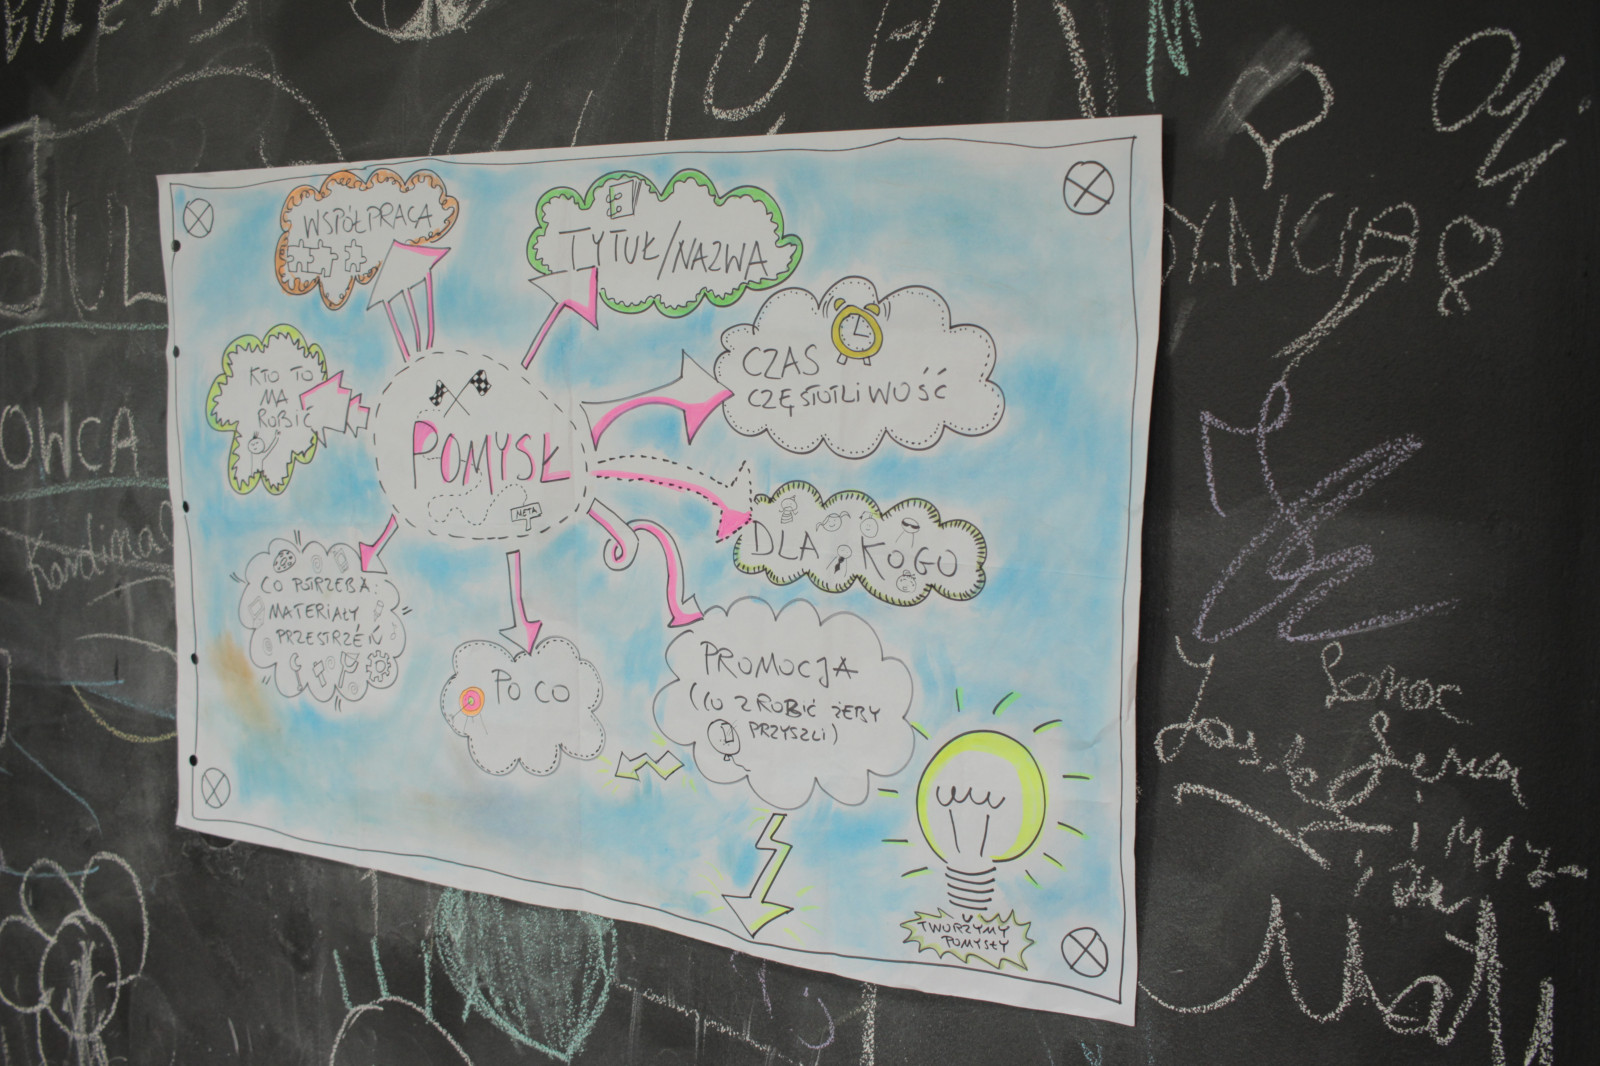 WSPÓŁPRACA
TYTUŁ/NAZWA
CZAS
CZĘSTOTLIWOŚĆ
KTO TO
MA
ROBIĆ
POMYSŁ
META
DLA KOGO
CO POTRZEBA:
MATERIAŁY
PRZESTRZEŃ
PO CO
PROMOCJA
(CO ZROBIĆ ŻEBY
PRZYSZLI)
TWORZYMY
POMYSŁY
JUL
OWCA
Kardinal